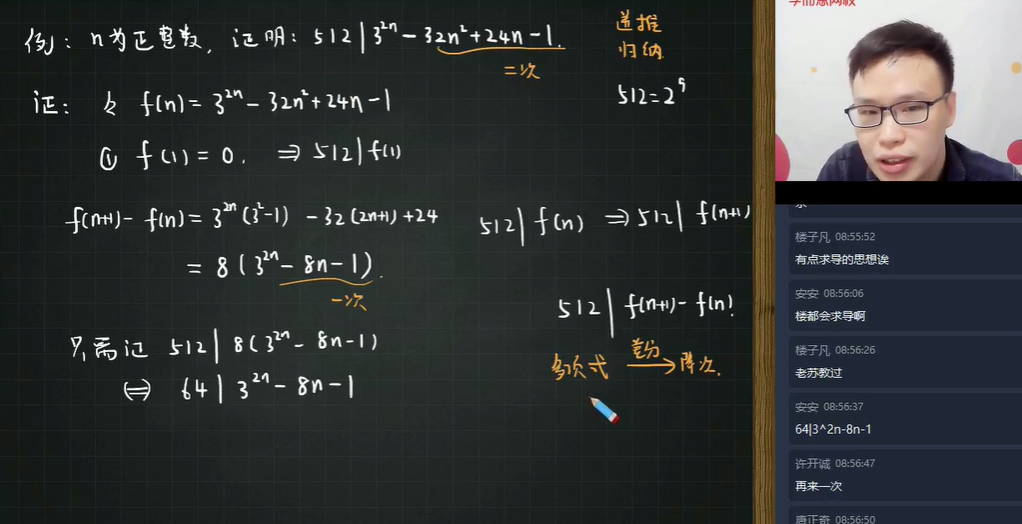 例：n为正整数，证明：512 | 3^{2n} - 32n² + 24n - 1.
二次
递推
归纳
512 = 2^9
证：令 f(n) = 3^{2n} - 32n² + 24n - 1
① f(1) = 0. ⇒ 512 | f(1)
f(n+1) - f(n) = 3^{2n}(3²-1) - 32(2n+1) + 24
= 8(3^{2n} - 8n - 1).
一次
512 | f(n) ⇒ 512 | f(n+1)
512 | f(n+1) - f(n)!
只需证 512 | 8(3^{2n} - 8n - 1)
⇔ 64 | 3^{2n} - 8n - 1
多项式 差分→ 降次.
学而思网校
楼子凡 08:55:52
有点求导的思想诶
安安 08:56:06
楼都会求导啊
楼子凡 08:56:26
老苏教过
安安 08:56:37
64|3^2n-8n-1
许开诚 08:56:47
再来一次
唐正奇 08:56:50